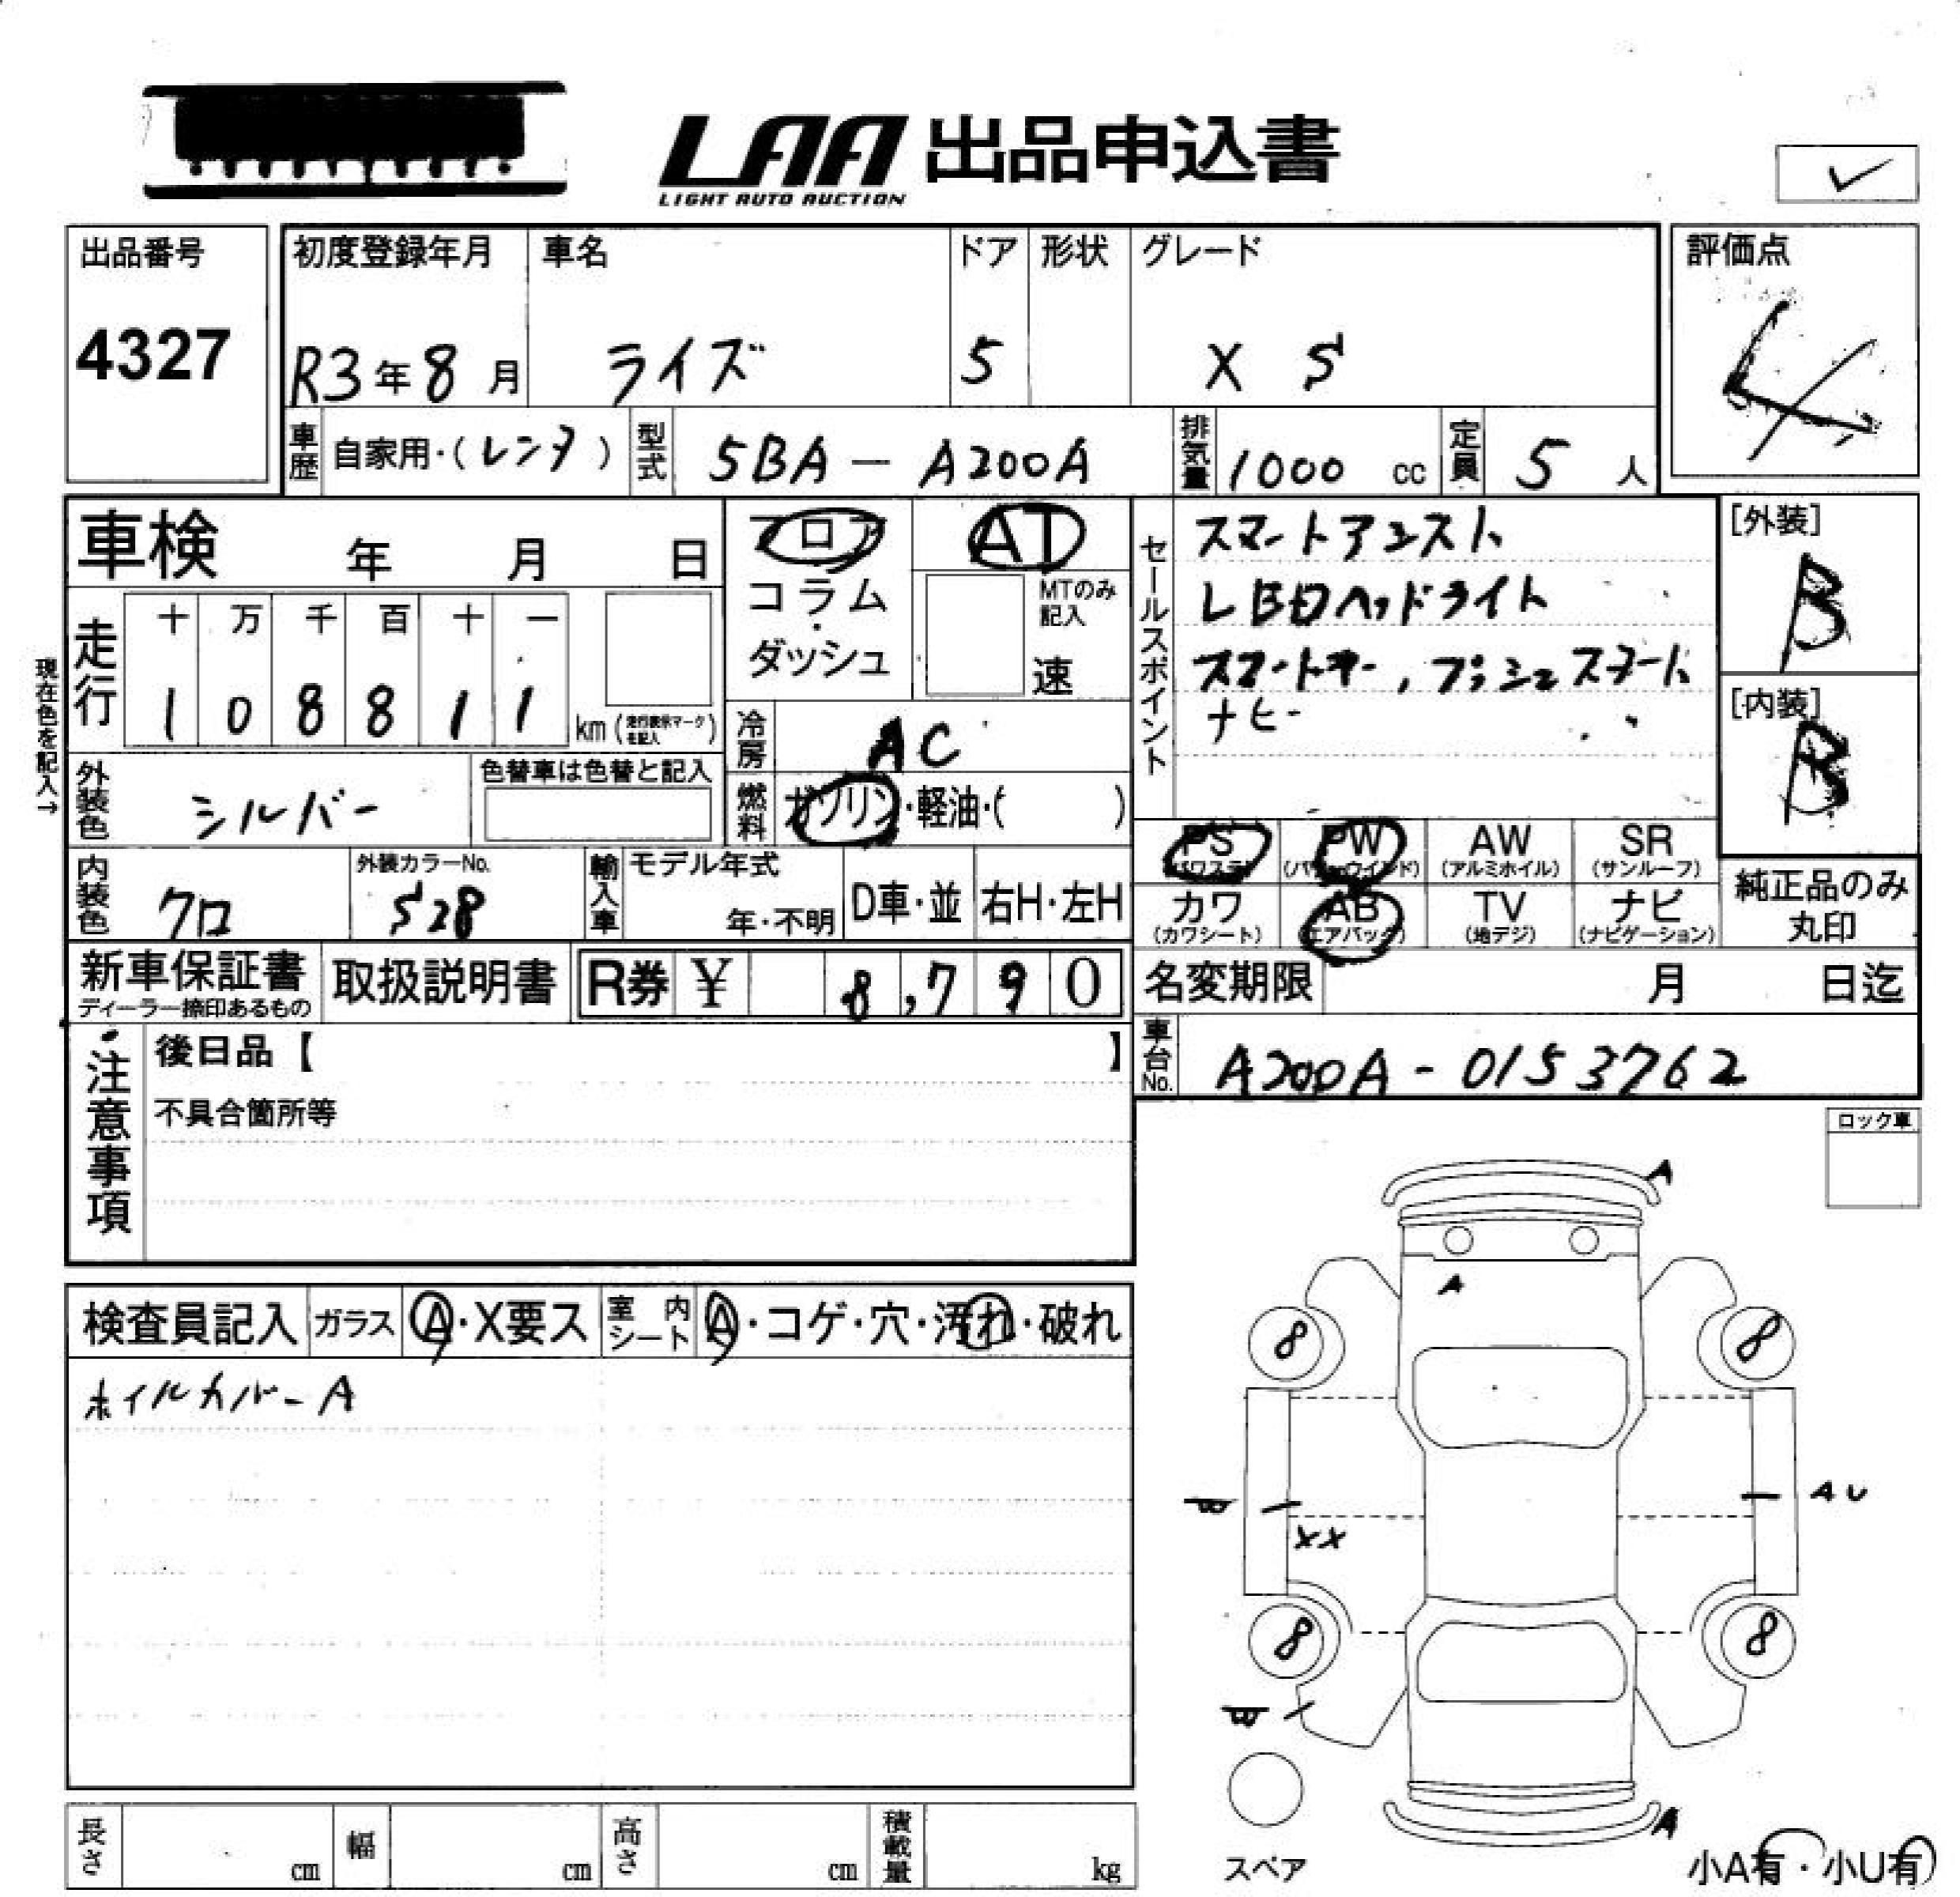 LAA 出品申込書
LIGHT AUTO AUCTION
出品番号
4327
初度登録年月 車名 ドア 形状 グレード
R3年8月 ライズ 5 X S
評価点
4
車歴 自家用・(レンタ) 型式 5BA-A200A 排気量 1000 cc 定員 5 人
車検 年 月 日
フロア
コラム
・
ダッシュ
AT
MTのみ
記入
速
セールスポイント
スマートアシスト
LEDヘッドライト
スマートキー,プッシュスタート
ナビ
[外装]
B
[内装]
B
現在色を記入→
走行
十 万 千 百 十 一
1 0 8 8 1 1
km (走行表示マークを記入)
冷房 AC
外装色 シルバー
色替車は色替と記入
燃料 ガソリン・軽油・( )
PS AW SR
PW
(パワステ) (パワーウインド) (アルミホイル) (サンルーフ)
カワ AB TV ナビ
(カワシート) (エアバック) (地デジ) (ナビゲーション)
純正品のみ
丸印
内装色 クロ
外装カラーNo.
S28
輸入車 モデル年式
年・不明 D車・並 右H・左H
新車保証書
ディーラー捺印あるもの
取扱説明書 R券 ¥ 8,790
名変期限 月 日迄
車台No. A200A-0153762
注意事項
後日品【 】
不具合箇所等
ロック車
検査員記入 ガラス A・X要ス 室内シート A・コゲ・穴・汚れ・破れ
ホイルカバーA
A
A
8 8
AU
XX
8 8
A
スペア
小A有・小U有
長さ cm 幅 cm 高さ cm 積載量 kg